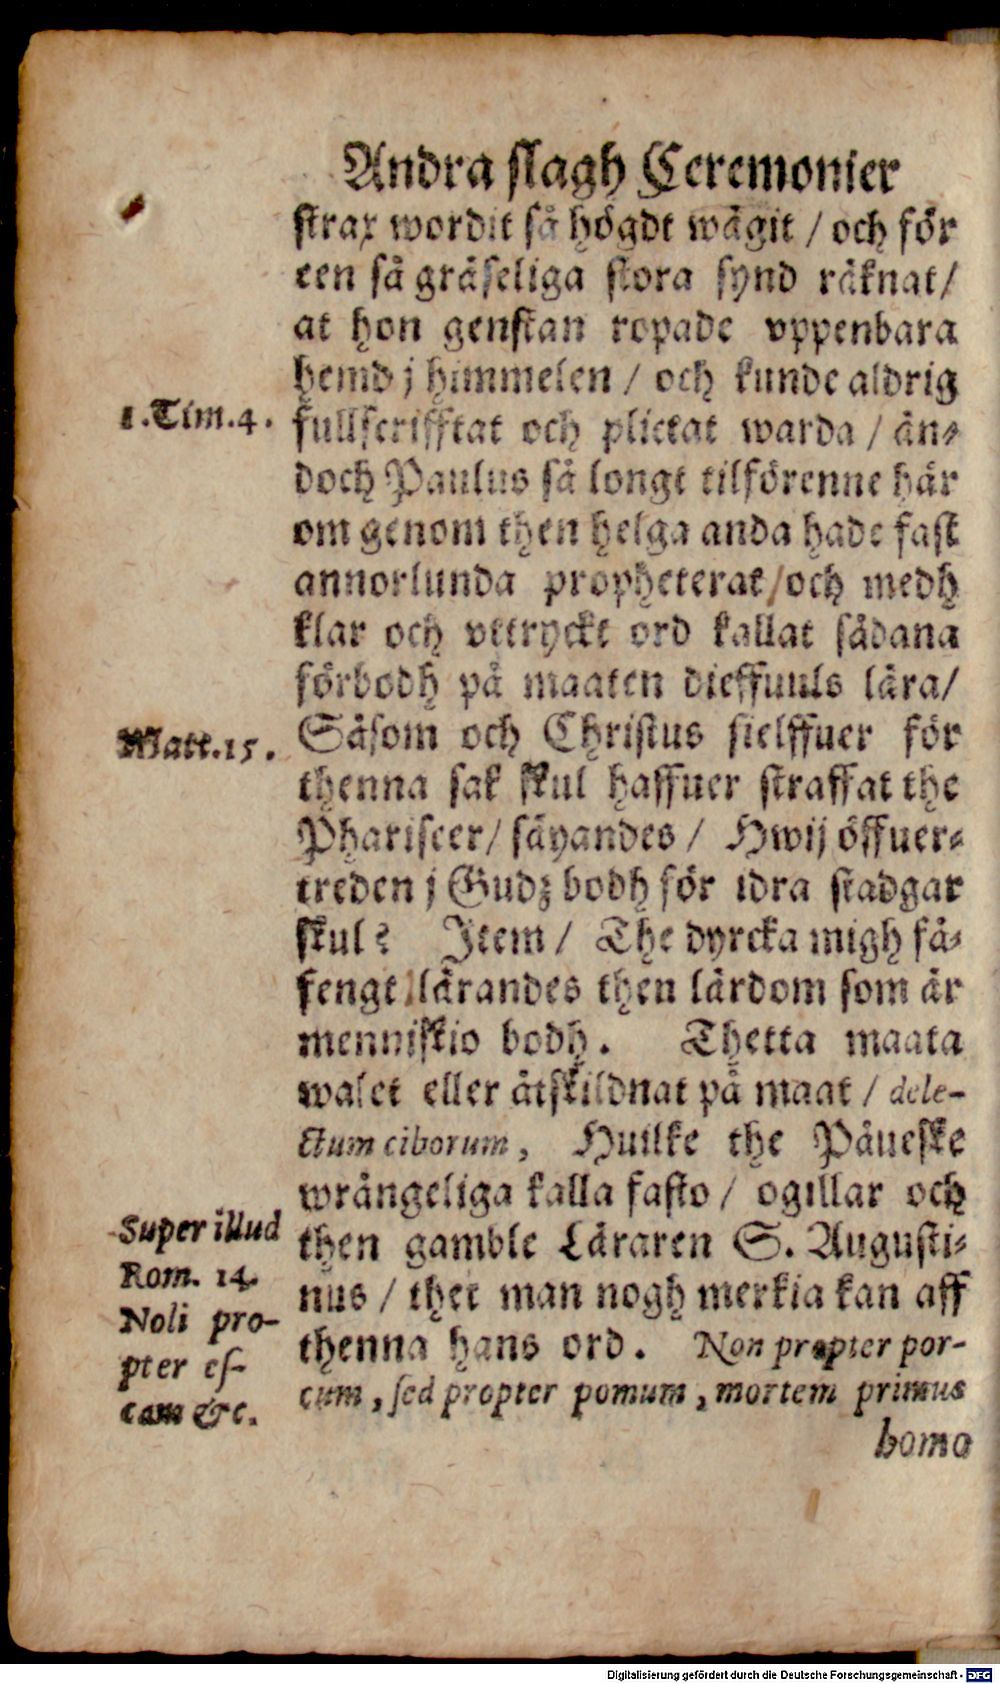 Andra slagh Ceremonier
strax wordit så högdt wägit / och för
een så gräseliga stora synd räknat /
at hon genstan ropade vppenbara
hemd j himmelen / och kunde aldrig
1.Tim.4.
fullscrifftat och plictat warda / än-
doch Paulus så longt tilförenne här
om genom then helga anda hade fast
annorlunda propheterat / och medh
klar och vttryckt ord kallat sådana
förbodh på maaten dieffuuls lära /
Matt.15.
Såsom och Christus sielffuer för
thenna sak skul haffuer straffat the
Phariseer / säyandes / Hwij öffuer-
treden j Gudz bodh för idra stadgar
skul? Item / The dyrcka migh få-
fengt lärandes then lärdom som är
menniskio bodh. Thetta maata
walet eller åtskildnat på maat / dele-
ctum ciborum, Huilke the Påueske
wrångeliga kalla fasto / ogillar och
Super illud
Rom. 14.
Noli pro-
pter es-
cam &c.
then gamble Läraren S. Augusti-
nus / thet man nogh merkia kan aff
thenna hans ord. Non propter por-
cum, sed propter pomum, mortem primus
homo
Digitalisierung gefördert durch die Deutsche Forschungsgemeinschaft - DFG